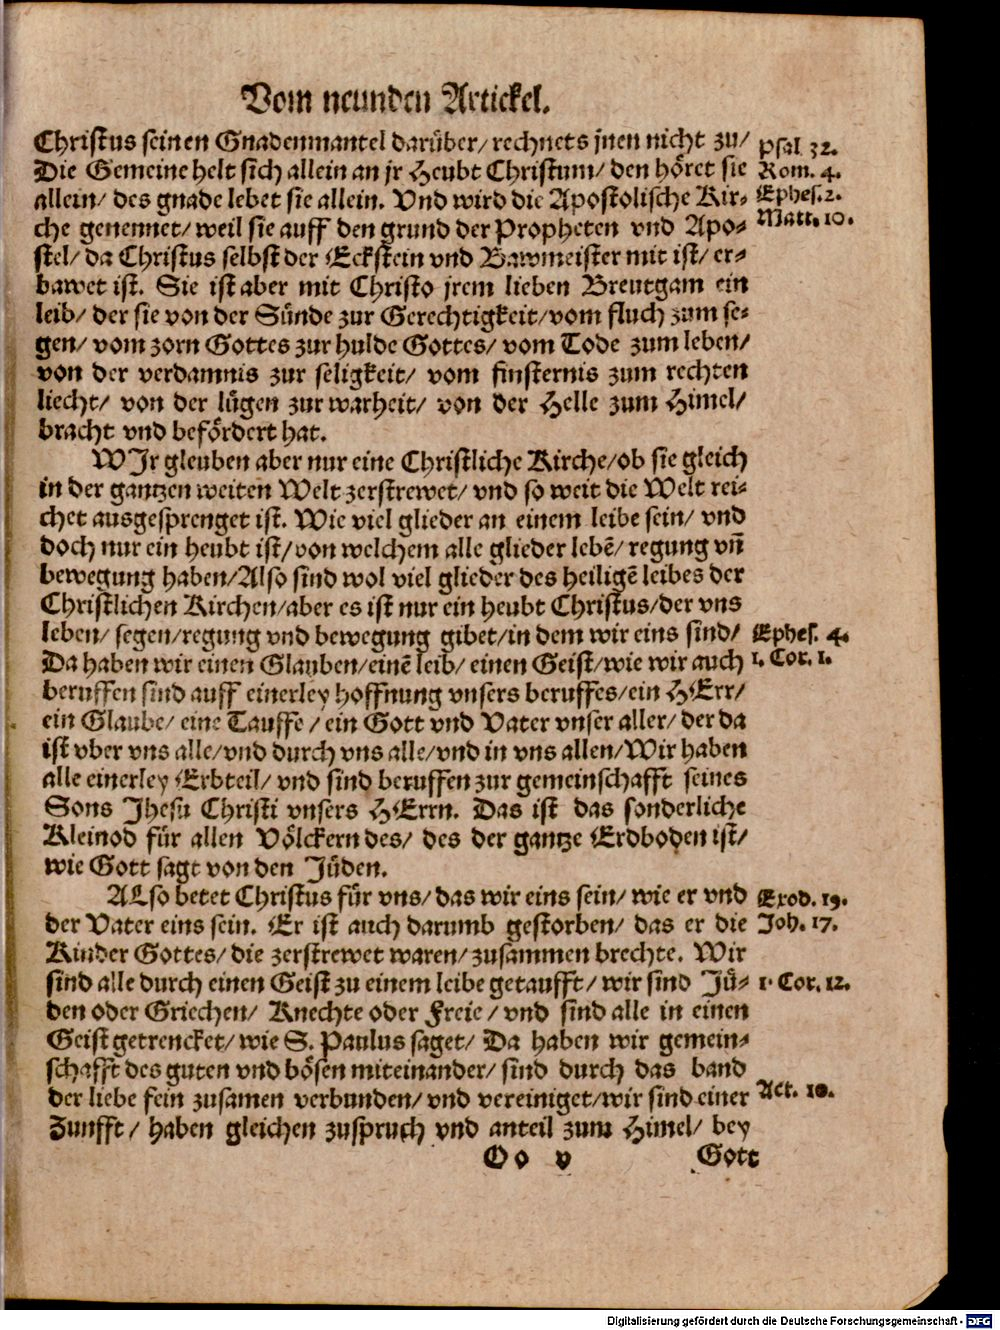 Vom neunden Artickel.
Christus seinen Gnadenmantel darüber/ rechnets jnen nicht zu/ Psal 32.
Die Gemeine helt sich allein an jr Heubt Christum/ den höret sie Rom. 4.
allein/ des gnade lebet sie allein. Vnd wird die Apostolische Kir- Ephes. 2.
che genennet/ weil sie auff den grund der Propheten vnd Apo- Matt. 10.
stel/ da Christus selbst der Eckstein vnd Bawmeister mit ist/ er-
bawet ist. Sie ist aber mit Christo jrem lieben Breutgam ein
leib/ der sie von der Sünde zur Gerechtigkeit/ vom fluch zum se-
gen/ vom zorn Gottes zur hulde Gottes/ vom Tode zum leben/
von der verdamnis zur seligkeit/ vom finsternis zum rechten
liecht/ von der lügen zur warheit/ von der Helle zum Himel/
bracht vnd befördert hat.
WJr gleuben aber nur eine Christliche Kirche/ ob sie gleich
in der gantzen weiten Welt zerstrewet/ vnd so weit die Welt rei-
chet ausgesprenget ist. Wie viel glieder an einem leibe sein/ vnd
doch nur ein heubt ist/ von welchem alle glieder lebē/ regung vn̄
bewegung haben/ Also sind wol viel glieder des heiligē leibes der
Christlichen Kirchen/ aber es ist nur ein heubt Christus/ der vns
leben/ segen/ regung vnd bewegung gibet/ in dem wir eins sind/ Ephes. 4.
Da haben wir einen Glauben/ einē leib/ einen Geist/ wie wir auch 1. Cor. 1.
beruffen sind auff einerley hoffnung vnsers beruffes/ ein HErr/
ein Glaube/ eine Tauffe/ ein Gott vnd Vater vnser aller/ der da
ist vber vns alle/ vnd durch vns alle/ vnd in vns allen/ Wir haben
alle einerley Erbteil/ vnd sind beruffen zur gemeinschafft seines
Sons Jhesu Christi vnsers HErrn. Das ist das sonderliche
Kleinod für allen Völckern des/ des der gantze Erdboden ist/
wie Gott sagt von den Jüden.
ALso betet Christus für vns/ das wir eins sein/ wie er vnd Exod. 19.
der Vater eins sein. Er ist auch darumb gestorben/ das er die Joh. 17.
Kinder Gottes/ die zerstrewet waren/ zusammen brechte. Wir
sind alle durch einen Geist zu einem leibe getaufft/ wir sind Jü- 1. Cor. 12.
den oder Griechen/ Knechte oder Freie/ vnd sind alle in einen
Geist getrencket/ wie S. Paulus saget/ Da haben wir gemein-
schafft des guten vnd bösen miteinander/ sind durch das band
der liebe fein zusamen verbunden/ vnd vereiniget/ wir sind einer Act. 10.
Zunfft/ haben gleichen zuspruch vnd anteil zum Himel/ bey
Oo v Gott
Digitalisierung gefördert durch die Deutsche Forschungsgemeinschaft - DFG